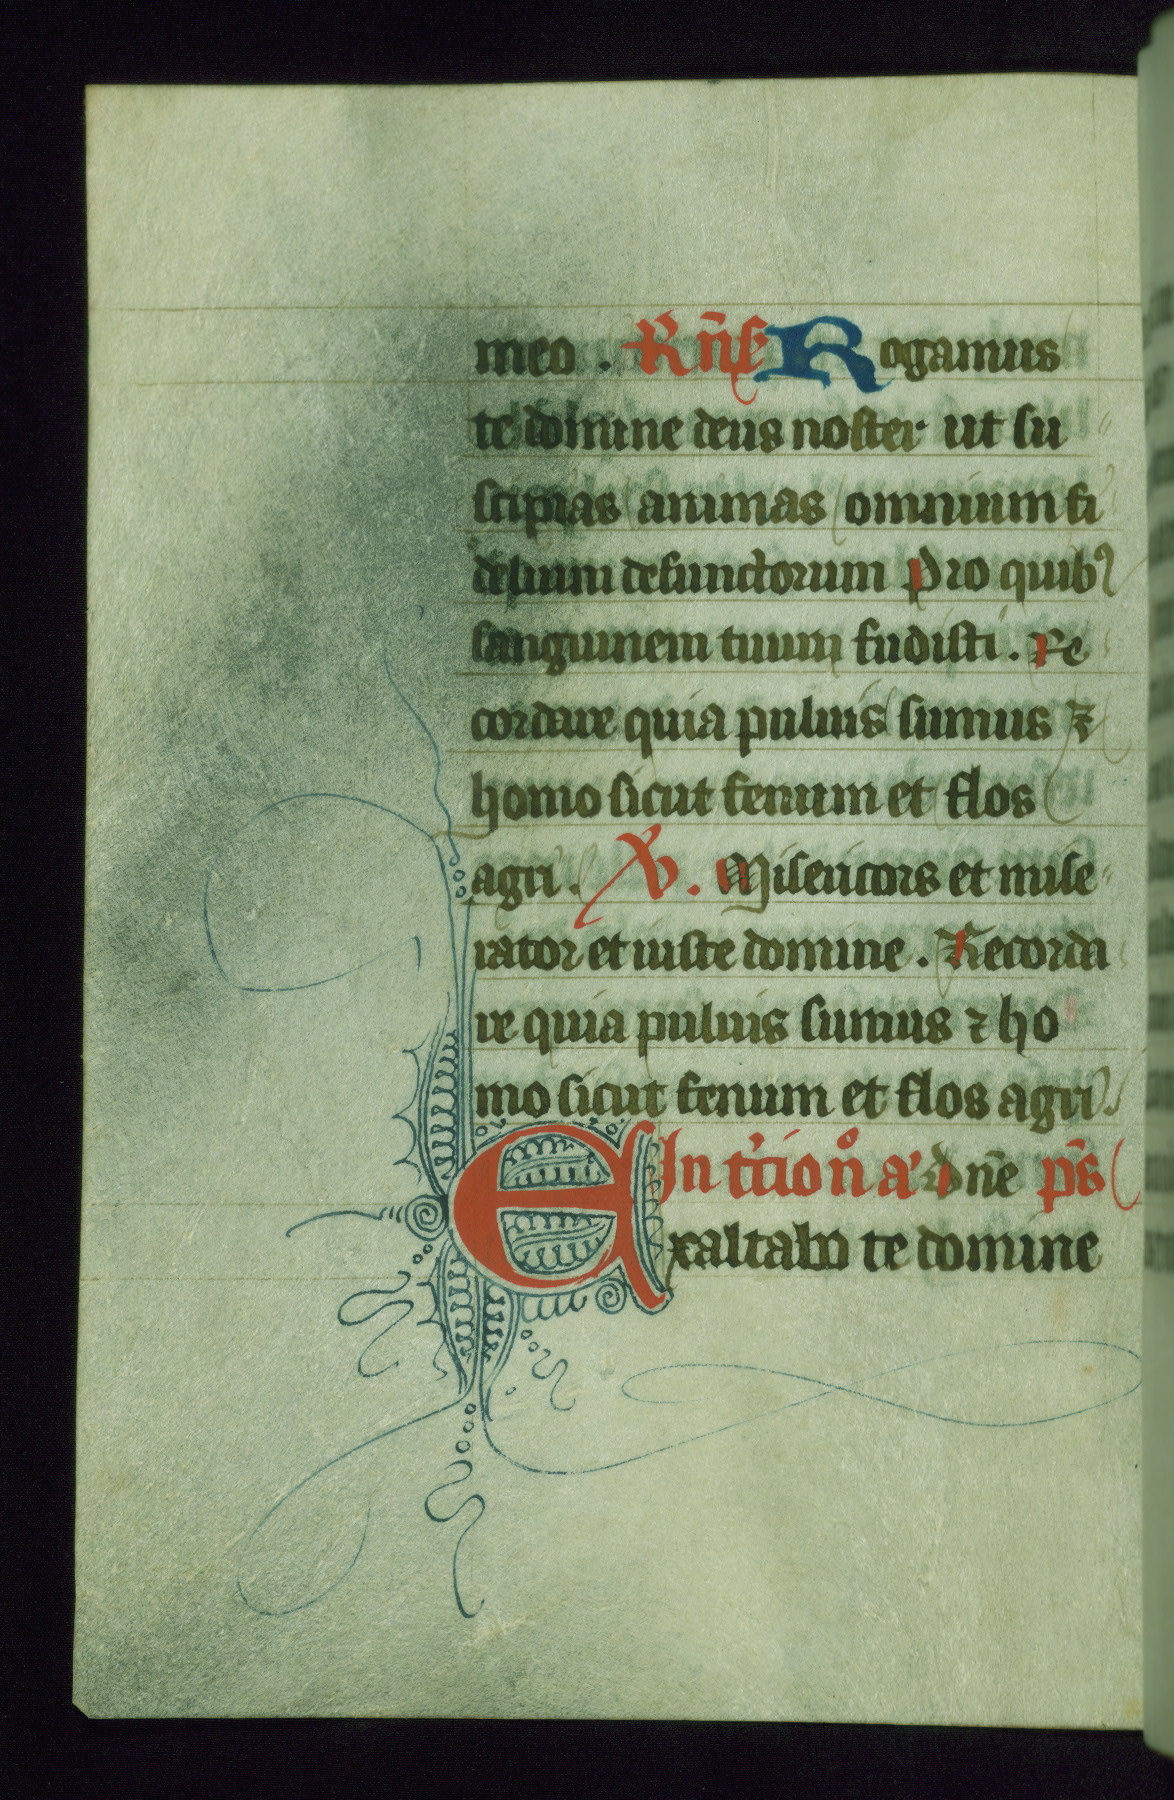 meo . Rñs Rogamus
te domine deus noster ut su
scipias animas omnium fi
delium defunctorum Pro quibꝰ
sanguinem tuum fudisti . Re
cordare quia puluis sumus ⁊
homo sicut fenum et flos
agri . V . Misericors et mise
rator et iuste domine . Recorda
re quia puluis sumus ⁊ ho
mo sicut fenum et flos agri .
In t'cio noº aª dñe ps̄
Exaltabo te domine